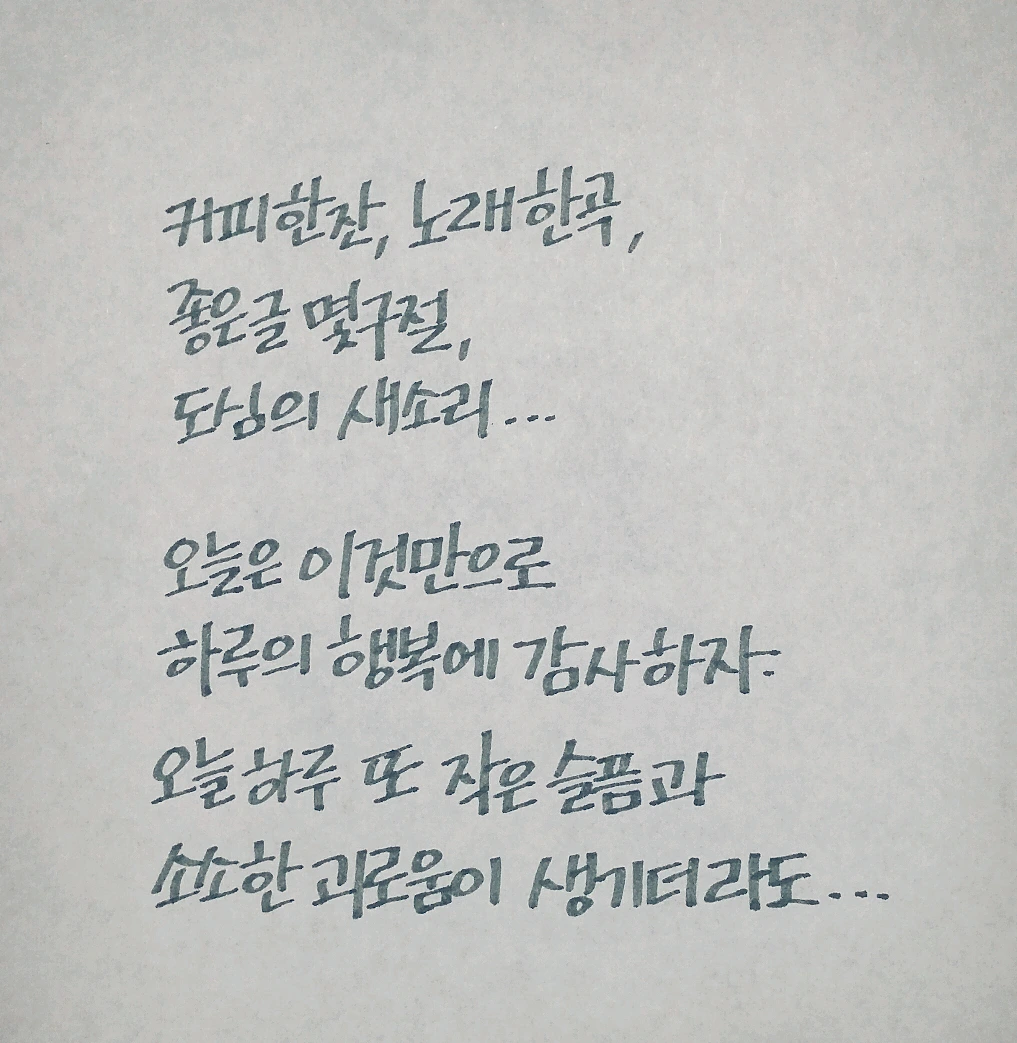 커피한잔, 노래한곡,
좋은글 몇구절,
도심의 새소리...
오늘은 이것만으로
하루의 행복에 감사하자:
오늘하루 또 작은슬픔과
소소한 괴로움이 생기더라도...